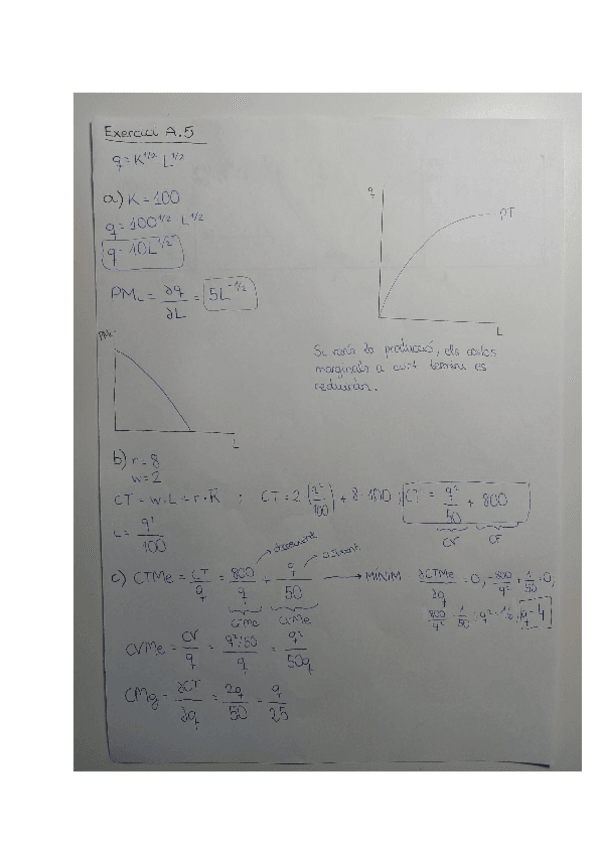 Exercici A.5
q = K^1/2 L^1/2
a) K = 100
q = 100^1/2 L^1/2
q = 10L^1/2
PM_L = ∂q/∂L = 5L^-1/2
q
PT
L
PM_L
L
producció, els costos
marginals a curt termini es
reduiran.
b) r = 8
w = 2
CT = w·L = r·K ; CT = 2 (q²/100) + 8·100 ; CT = q²/50 + 800
CV CF
L = q²/100
c) CTMe = CT/q = 800/q + q/50 → MINIM ∂CTMe/∂q = 0, -800/q² + 1/50 = 0,
decreixent
creixent
CFMe CVMe
800/q² = 1/50
CVMe = CV/q = q²/50/q = q²/50q
CMg = ∂CT/∂q = 2q/50 = q/25